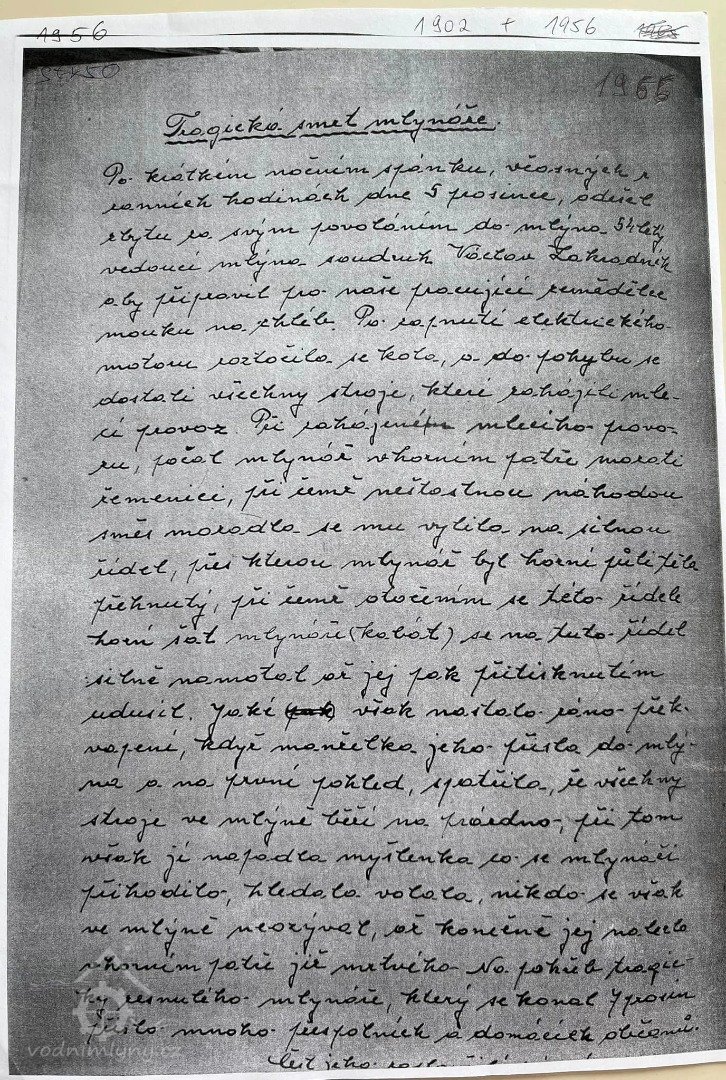 1956
1902 + 1956
1956
Tragická smrt mlynáře.
Po krátkém nočním spánku, včasných
ranních hodinách dne 5 prosince, odešel
z bytu za svým povoláním do mlýna 54 letý
vedoucí mlýna soudruh Václav Zahradník
aby připravil pro naše pracující zemědělce
mouku na chléb. Po zapnutí elektrického
motoru roztočila se kola, a do pohybu se
dostali všechny stroje, které zahájili mle-
cí provoz. Při zahájeném mlecího provo-
zu, počal mlynář v horním patře mazati
řemenici, při čemž nešťastnou náhodou
směs mazadla se mu vylila na silnou
řídel, přes kterou mlynář byl horní půli těla
přehnutý, při čemž otočením se této řídele
horní šat mlynáře (kabát) se na tuto řídel
silně namotal až jej pak přitisknutím
udusil. Jaké však nastalo ráno překva-
pení, když manželka jeho přišla do mlý-
na a na první pohled, spatřila, že všechny
stroje ve mlýně běží na prázdno, při tom
však jí napadla myšlenka co se mlynáři
přihodilo, hledala volala, nikdo se však
ve mlýně neozýval, až konečně jej nalezla
v horním patře již mrtvého. Na pohřeb tragic-
ky zesnulého mlynáře, který se konal 7 prosin
přišlo mnoho přespolních a domácích občanů.
Čest jeho
vodnimlyny.cz